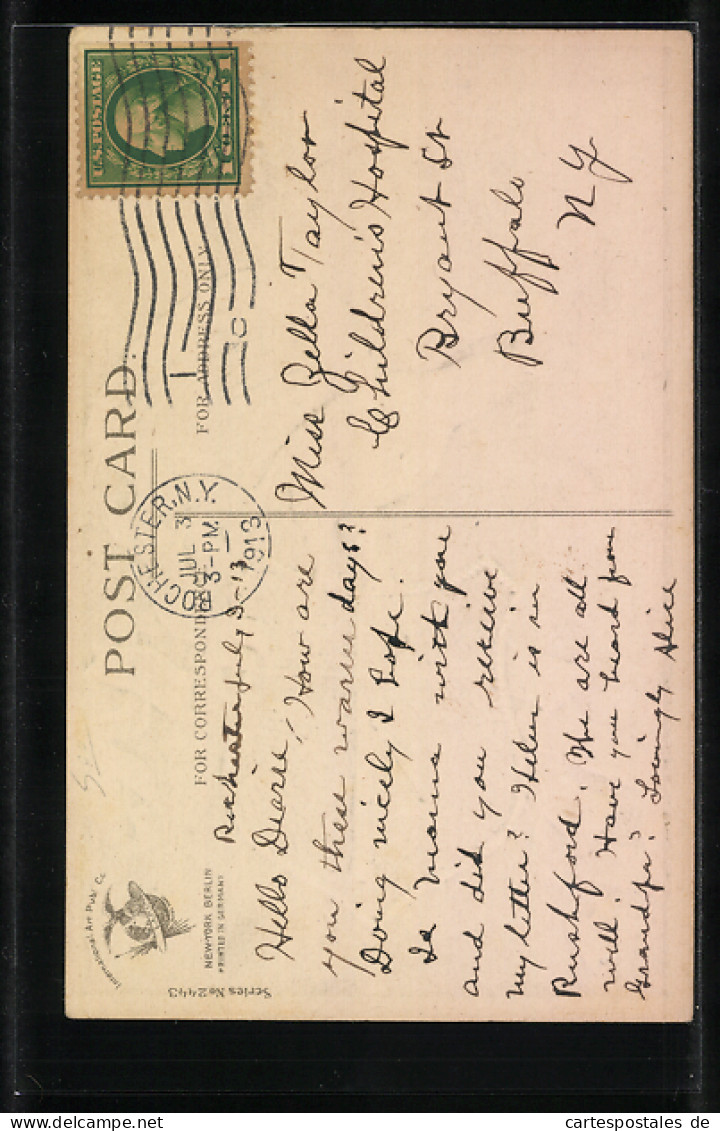 POST CARD.
FOR CORRESPONDENCE
FOR ADDRESS ONLY
U.S. POSTAGE
1 CENT 1
ROCHESTER, N.Y.
JUL 3
3-PM
1913
International Art Publ. Co.
NEW-YORK BERLIN
PRINTED IN GERMANY
Series No 2443
Rochester July 3-13
Hello Dearie, How are
you these warm days?
Doing nicely I hope.
Is mama with you
and did you receive
my letter? Helen is in
Rushford. We are all
well. Have you heard from
Grandpa? Lovingly Alice
Miss Zella Taylor
Children's Hospital
Bryant St
Buffalo
NY
cartespostales de